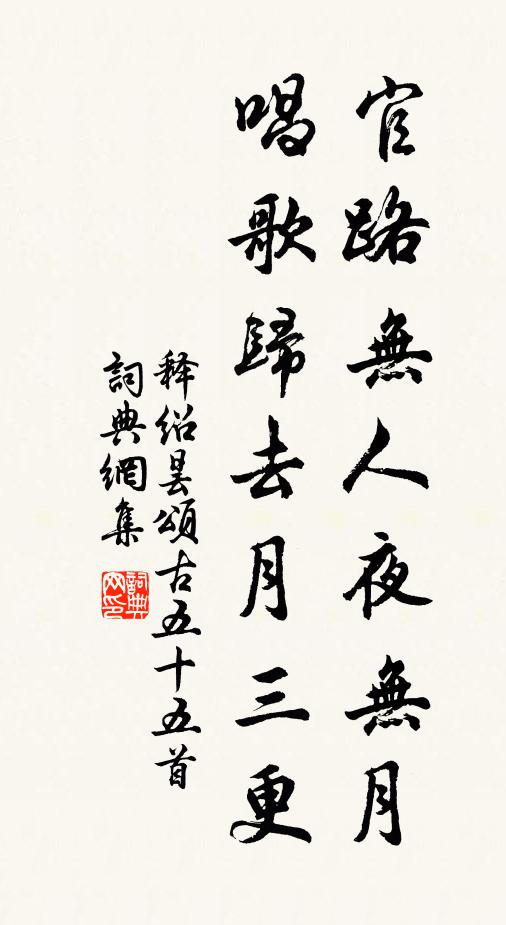 官路無人夜無月
唱歌歸去月三更
释绍昙頌古五十五首
詞典網集
詞典网印